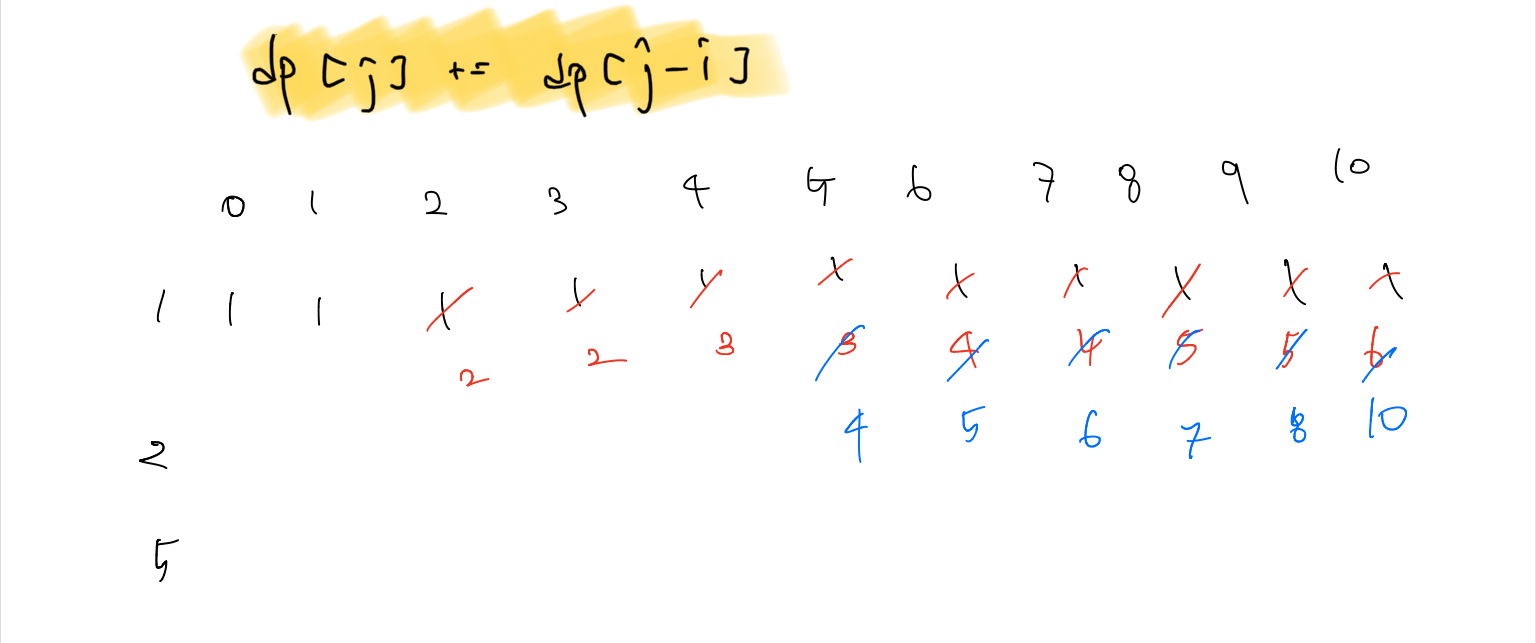 dp[j] += dp[j-i]
0 1 2 3 4 5 6 7 8 9 10
1 1 1 1 1 1 1 1 1 1 1 1
2 2 3 3 4 4 5 5 6
2 4 5 6 7 8 10
5